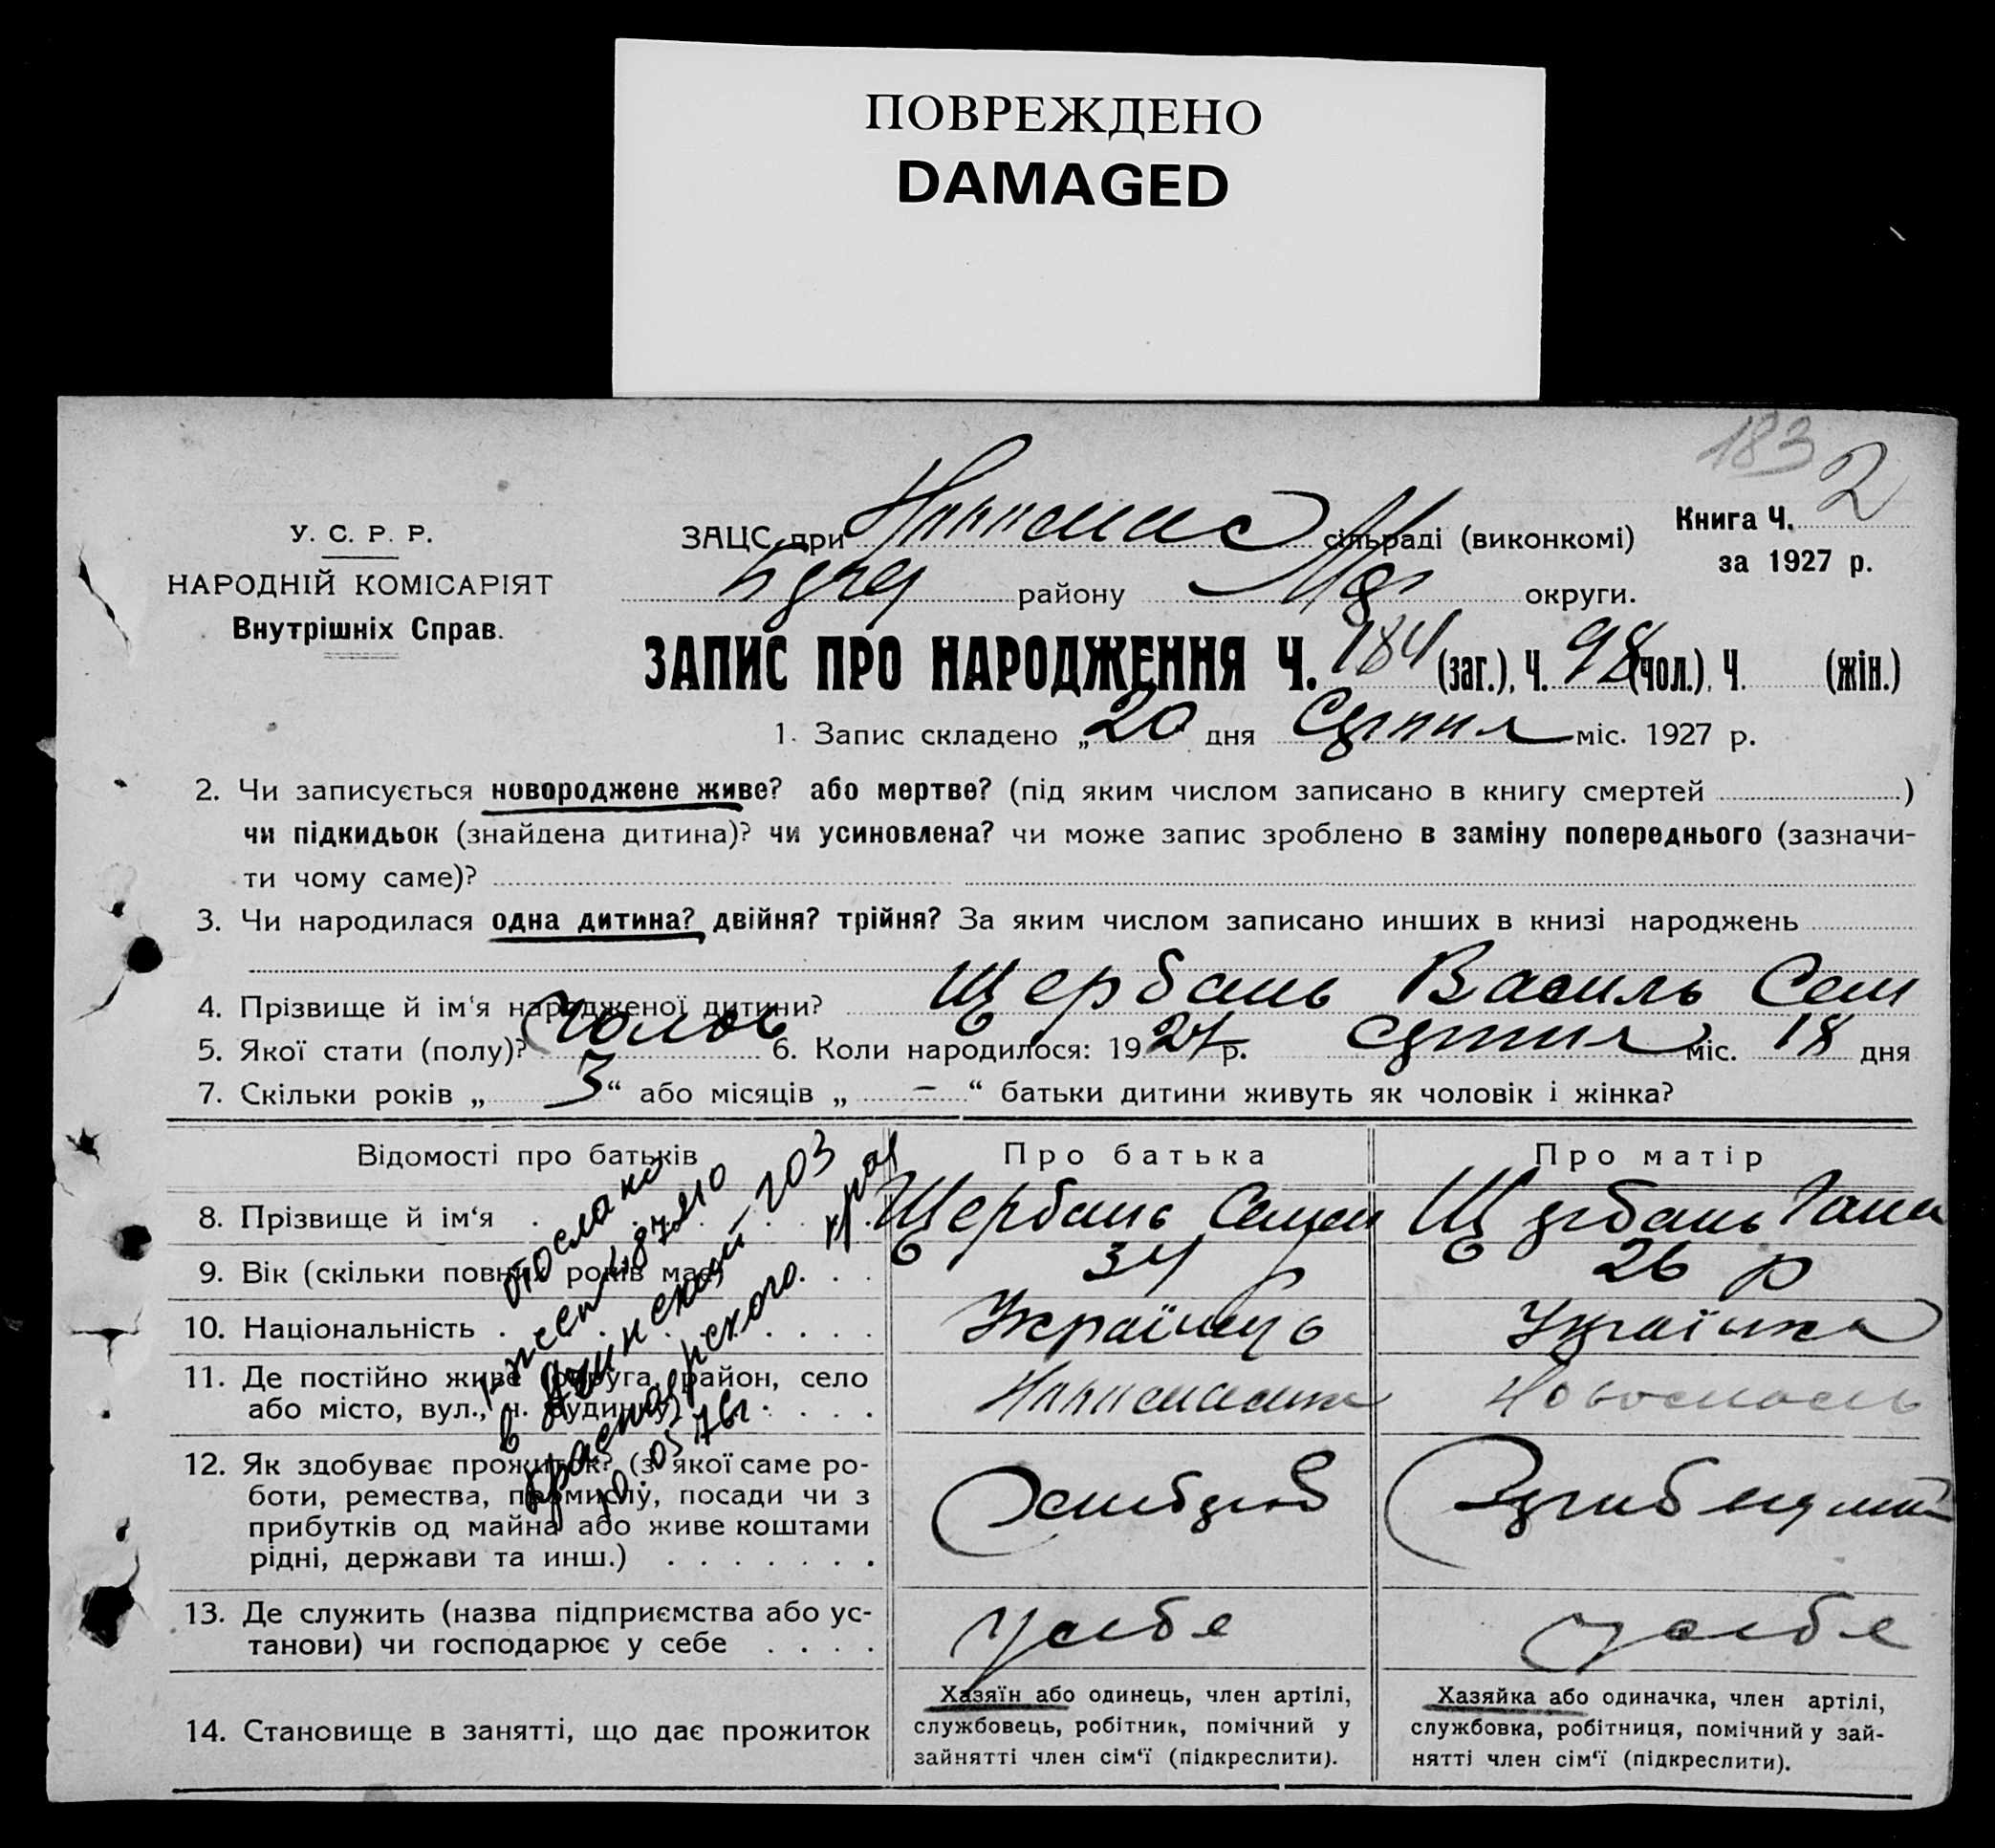 ПОВРЕЖДЕНО
DAMAGED
183 2
У. С. Р. Р.
НАРОДНІЙ КОМІСАРІЯТ
Внутрішніх Справ.
ЗАЦС при сільраді (виконкомі)
району округи.
Книга Ч.
за 1927 р.
ЗАПИС ПРО НАРОДЖЕННЯ Ч. 184 (заг.), Ч. 98 (чол.), Ч. (жін.)
1. Запис складено „20 дня Серпня міс. 1927 р.
2. Чи записується новороджене живе? або мертве? (під яким числом записано в книгу смертей )
чи підкидьок (знайдена дитина)? чи усиновлена? чи може запис зроблено в заміну попереднього (зазначи-
ти чому саме)?
3. Чи народилася одна дитина? двійня? трійня? За яким числом записано инших в книзі народжень
4. Прізвище й ім'я народженої дитини? Щербань Василь Сем
5. Якої стати (полу)? Чолов 6. Коли народилося: 1927 р. Серпня міс. 18 дня
7. Скільки років „ 3 “ або місяців „ – “ батьки дитини живуть як чоловік і жінка?
Відомості про батьків Про батька Про матір
8. Прізвище й ім'я . Щербань Семен Щербань Гана
9. Вік (скільки повних років має) . . . 34 р 26 р
10. Національність . Українець Українка
11. Де постійно живе (округа, район, село
або місто, вул., ч. будинку)
12. Як здобуває прожиток? (з якої саме ро-
боти, ремества, промислу, посади чи з
прибутків од майна або живе коштами
рідні, держави та инш.) . . . . . . .
13. Де служить (назва підприємства або ус-
танови) чи господарює у себе . . . . у себе у себе
14. Становище в занятті, що дає прожиток
Хазяїн або одинець, член артілі,
службовець, робітник, помічний у
зайнятті член сім'ї (підкреслити).
Хазяйка або одиначка, член артілі,
службовка, робітниця, помічний у зай-
нятті член сім'ї (підкреслити).
отослано
в Ачинский
Красноярского края